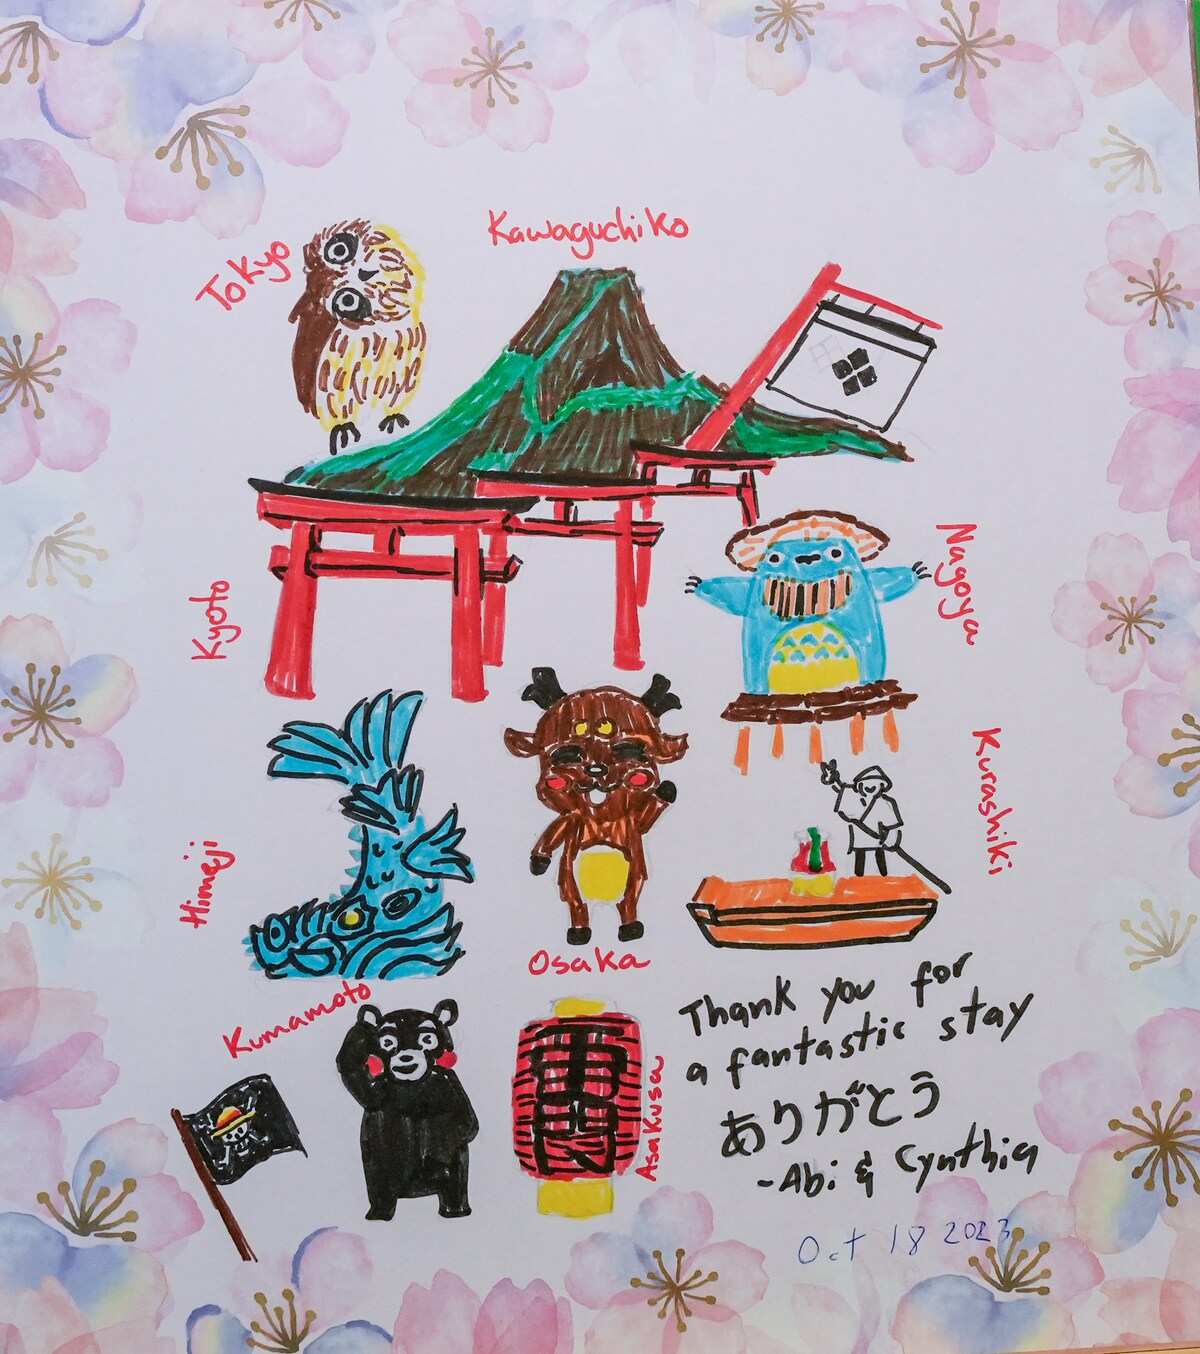 Tokyo
Kawaguchiko
Kyoto
Nagoya
Himeji
Kurashiki
Osaka
Kumamoto
雷門
Asakusa
Thank you for
a fantastic stay
ありがとう
-Abi & Cynthia
Oct 18 2023